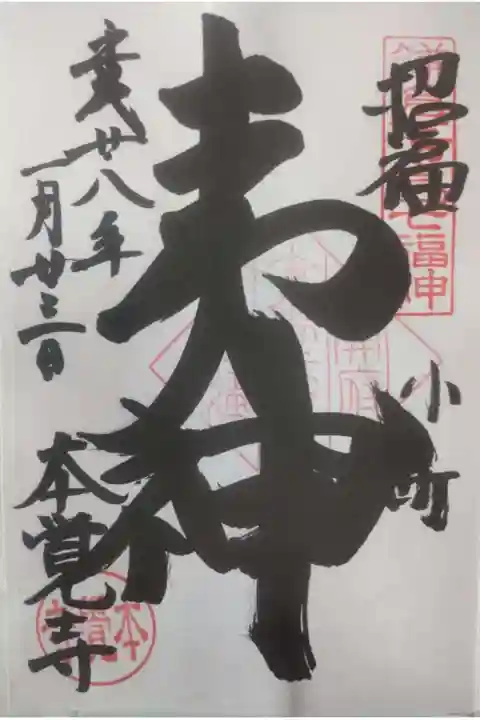 鎌倉七福神
招福
小町
夷神
廿八年
一月廿三日
本覚寺
本覚寺